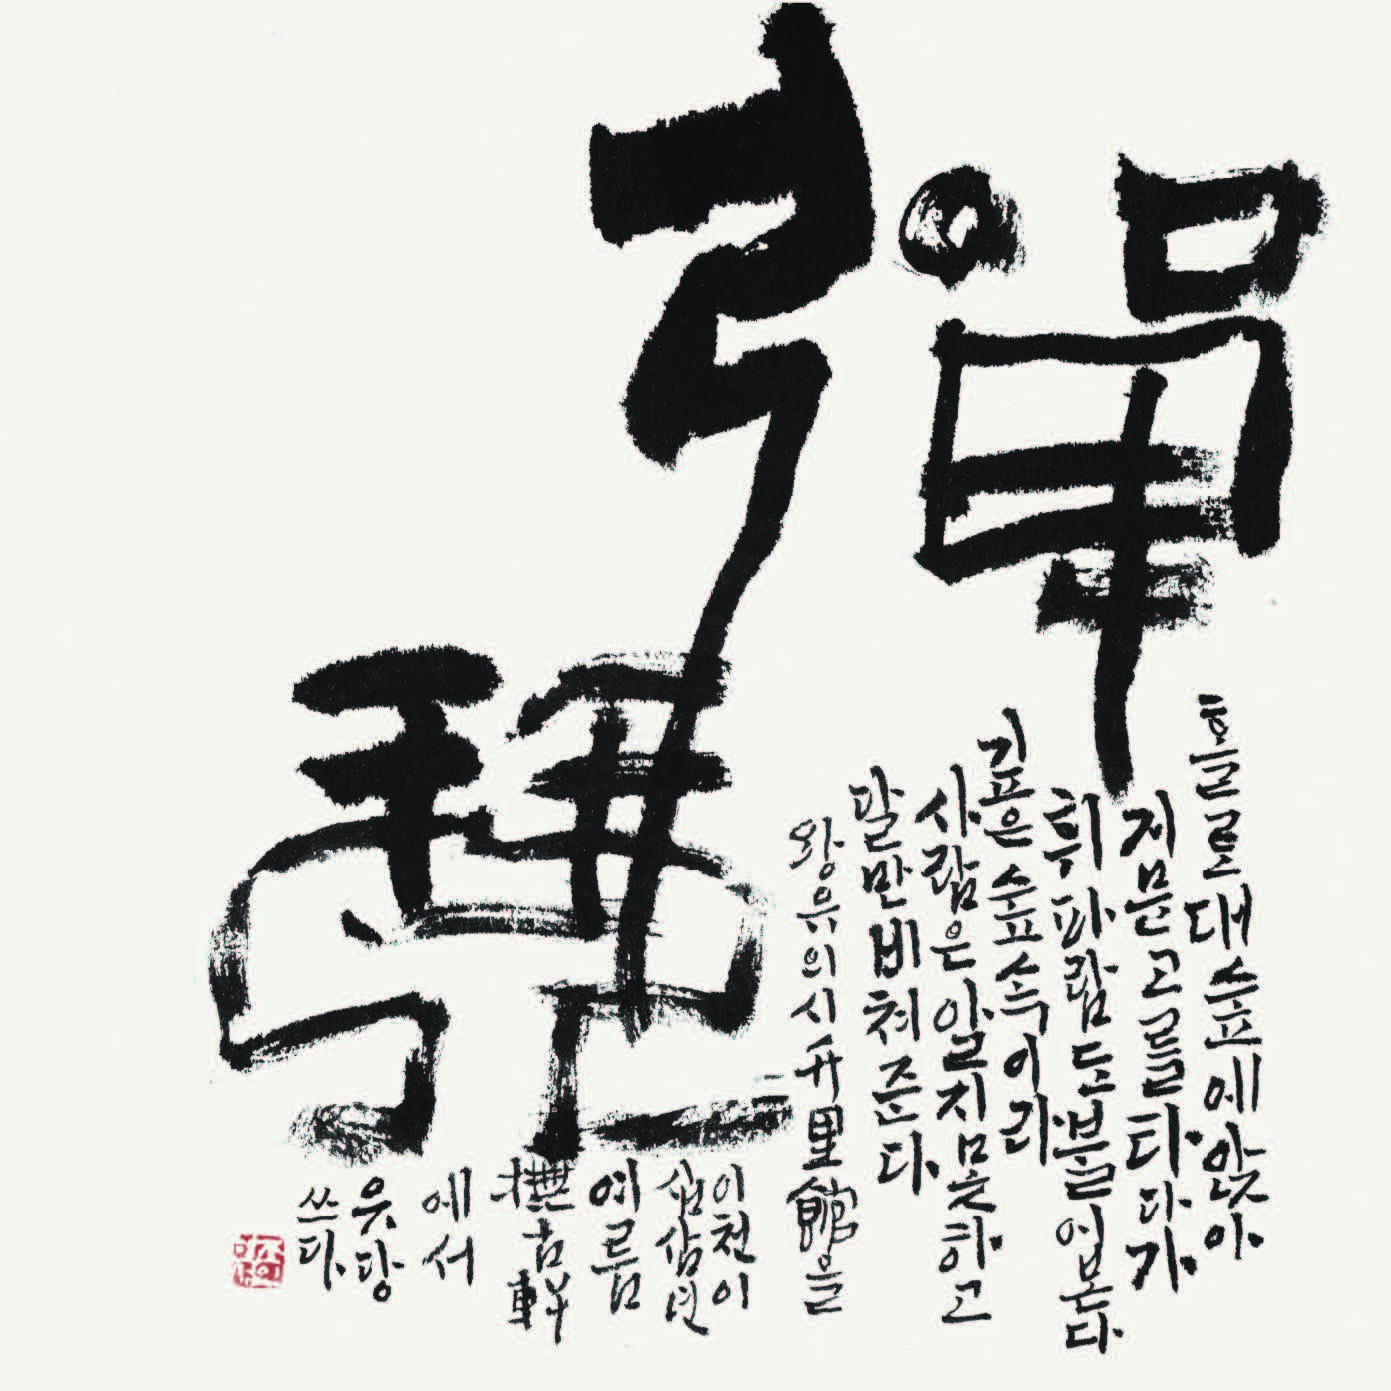 彈
琴
홀로대숲에앉아
거문고를타다가
휘파람도불어본다
깊은숲속이라
사람은알지못하고
달만비쳐준다
왕유의시竹里館을
이천이
십삼년
여름
撫古軒
에서
웃당
쓰다